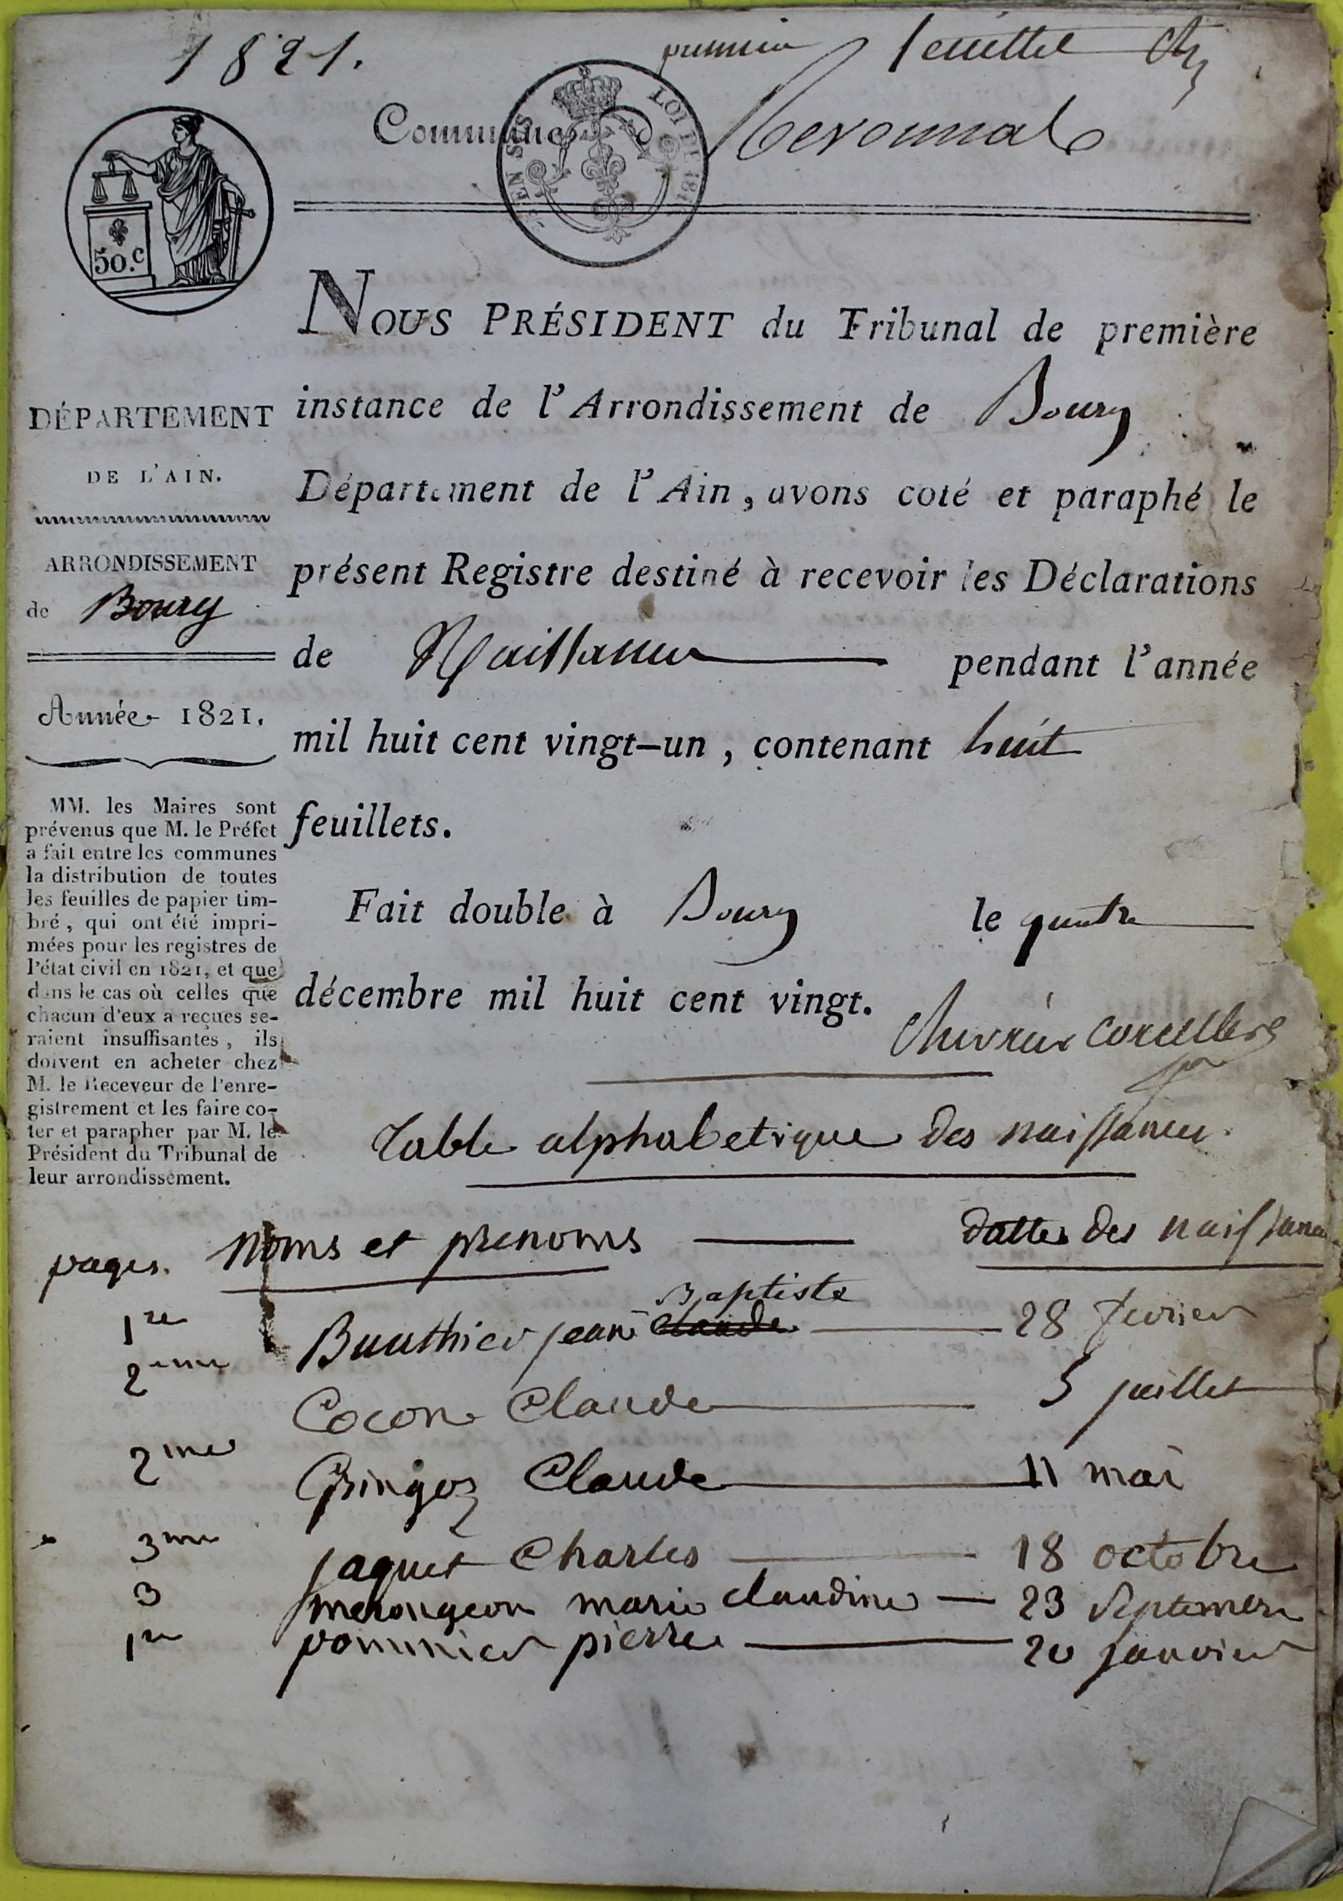 1821.
premier feuillet
Commune
LOI DE 181
EN SUS
50.c
NOUS PRÉSIDENT du Tribunal de première
instance de l'Arrondissement de Bourg
Département de l'Ain, avons coté et paraphé le
présent Registre destiné à recevoir les Déclarations
de Naissance pendant l'année
mil huit cent vingt-un, contenant huit
feuillets.
Fait double à Bourg le quatre
décembre mil huit cent vingt.
Chevrier Corcelles
DÉPARTEMENT
DE L'AIN.
ARRONDISSEMENT
de Bourg
Année 1821.
MM. les Maires sont
prévenus que M. le Préfet
a fait entre les communes
la distribution de toutes
les feuilles de papier tim-
bré, qui ont été impri-
mées pour les registres de
l'état civil en 1821, et que
dans le cas où celles que
chacun d'eux a reçues se-
raient insuffisantes, ils
doivent en acheter chez
M. le Receveur de l'enre-
gistrement et les faire co-
ter et parapher par M. le
Président du Tribunal de
leur arrondissement.
Table alphabetique des naissances.
pages. Noms et prenoms dattes des naissances
1re Buathier jean Claude Baptiste 28 fevrier
2eme Cocon Claude 5 juillet
2me Gringoz Claude 11 mai
3me jaquet Charles 18 octobre
3 merongeon marie claudine 23 Septembre
1re pommier pierre 20 janvier